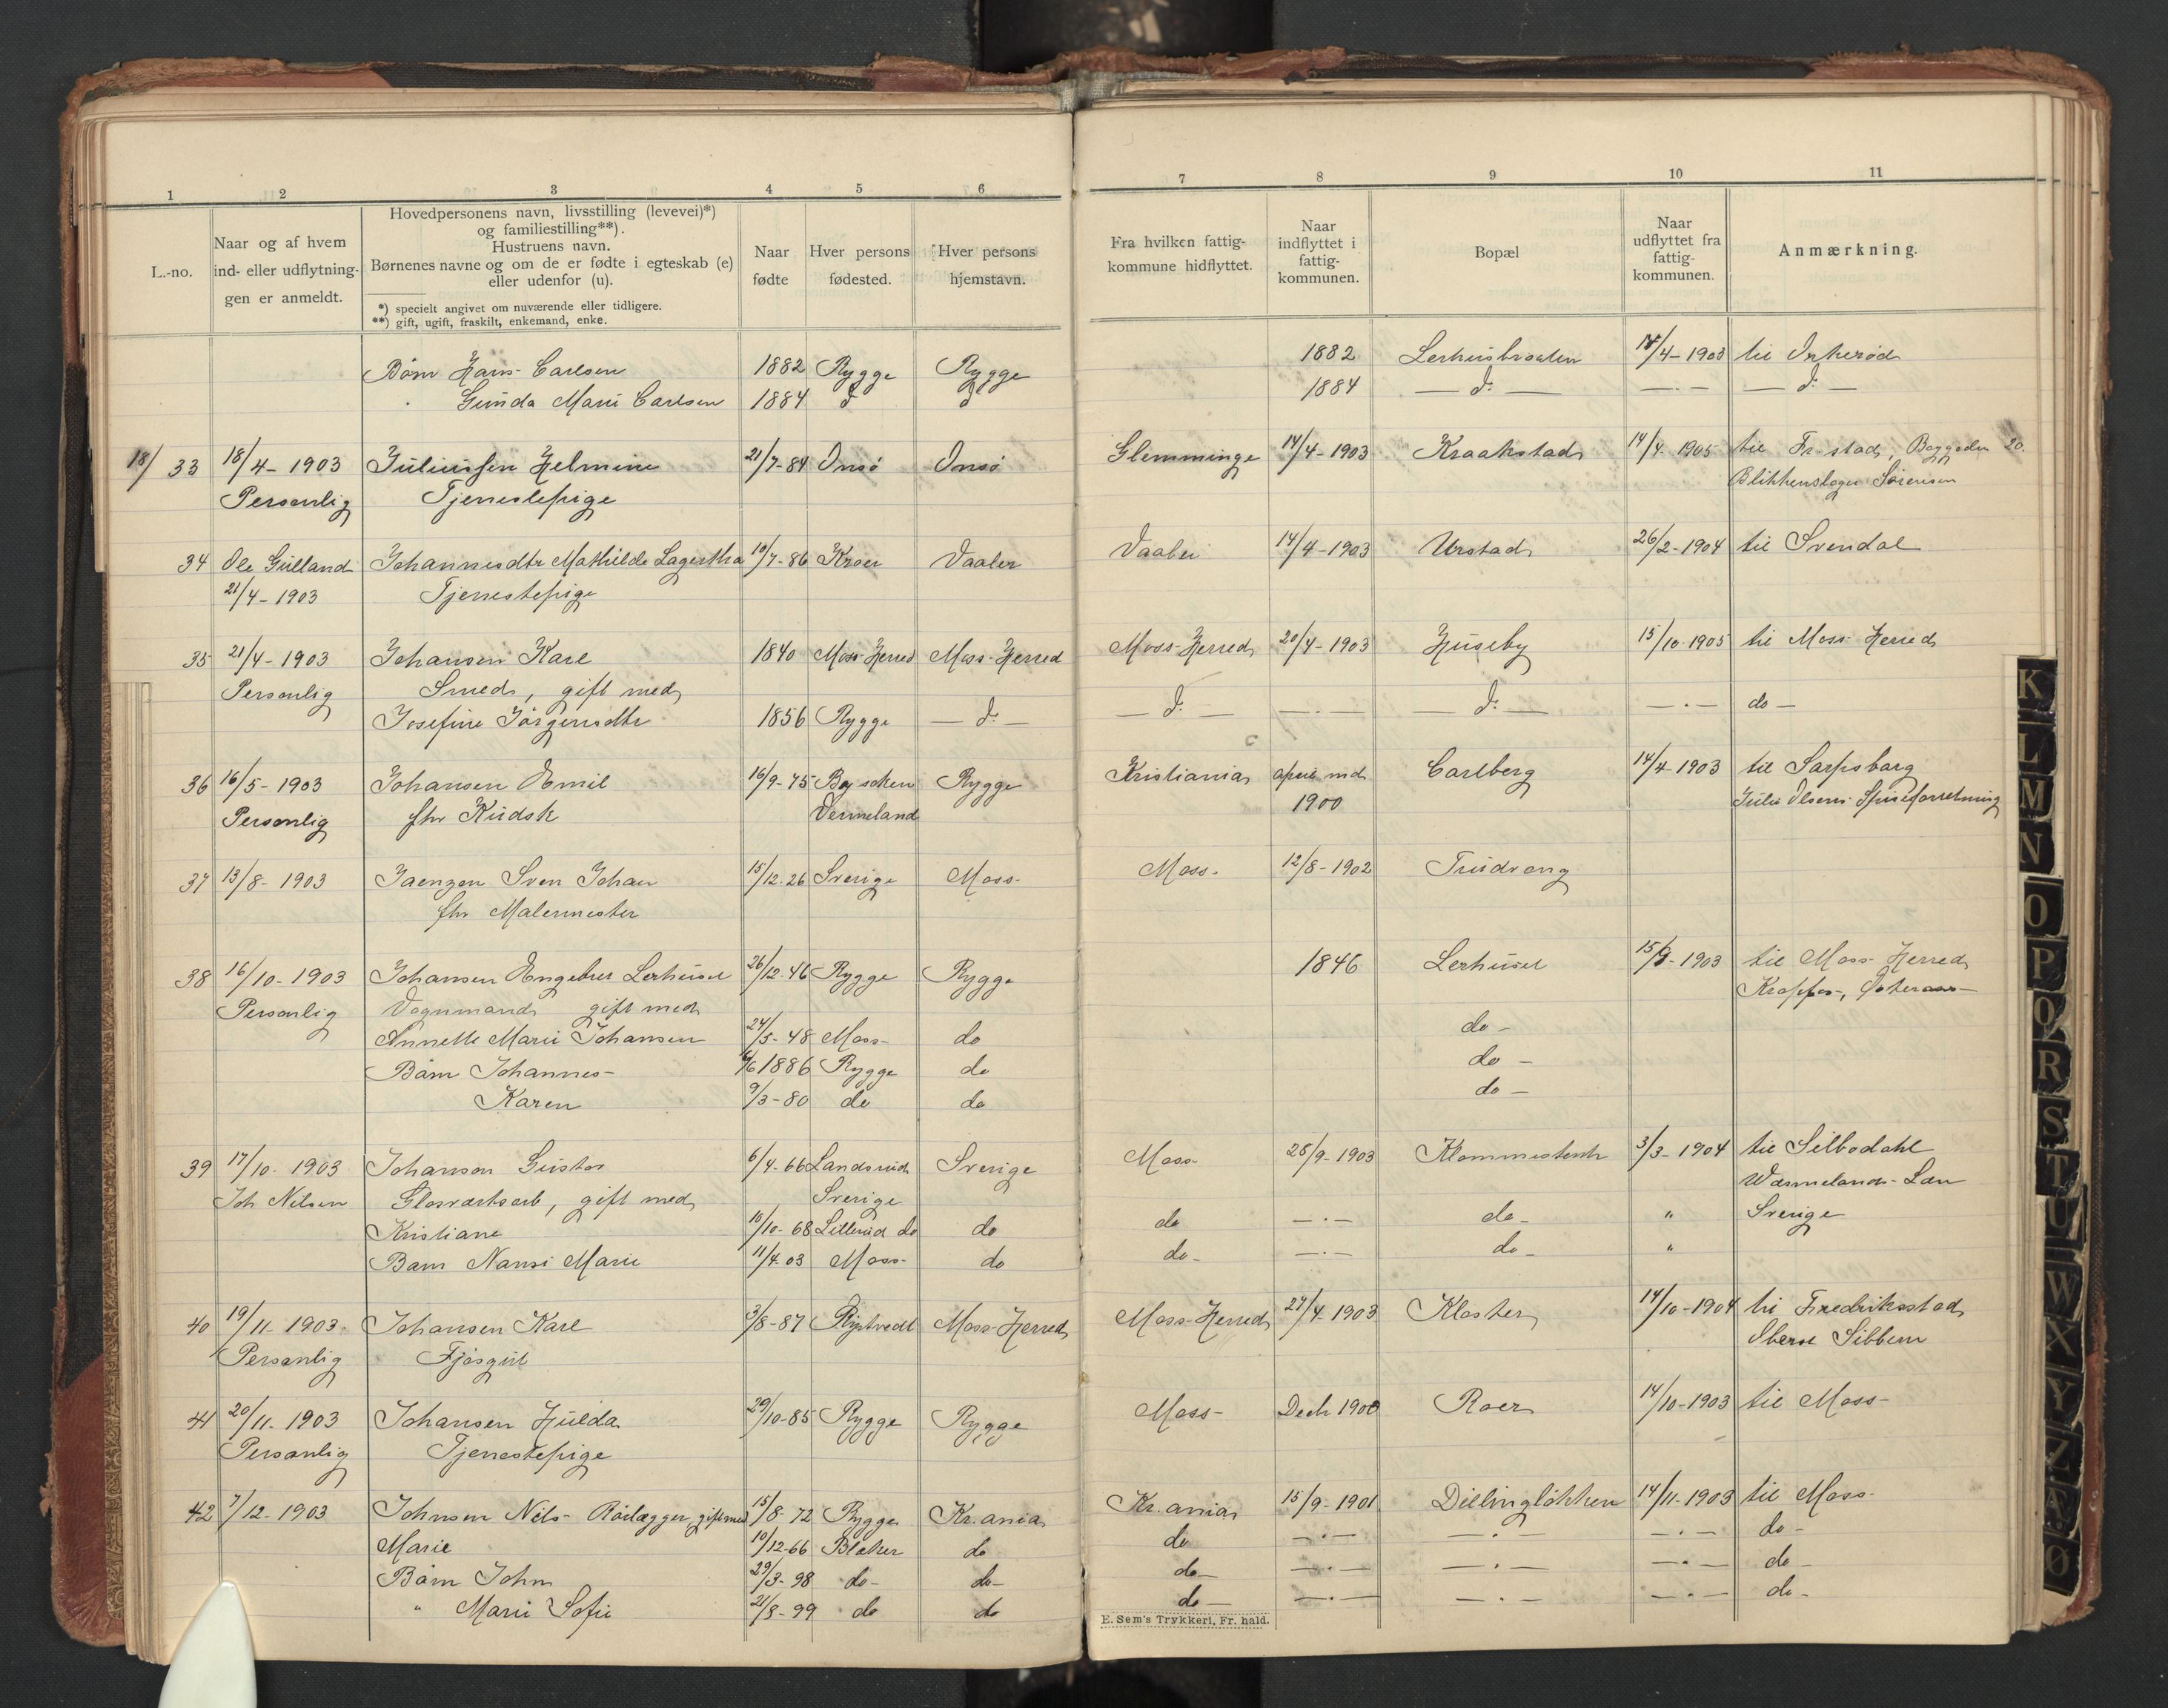 1 2 3 4 5 6 7 8 9 10 11
L.-no.
Naar og af hvem
ind- eller udflytnin-
gen er anmeldt.
Hovedpersonens navn, livsstilling (levevei)*)
og familiestilling**).
Hustruens navn.
Børnenes navne og om de er fødte i egteskab (e)
eller udenfor (u).
*) specielt angivet om nuværende eller tidligere.
**) gift, ugift, fraskilt, enkemand, enke.
Naar
fødte
Hver persons
fødested.
Hver persons
hjemstavn.
Fra hvilken fattig-
kommune hidflyttet.
Naar
indflyttet i
fattig-
kommunen.
Bopæl
Naar
udflyttet fra
fattig-
kommunen.
Anmærkning.
Børn Hans Carlsen 1882 Rygge Rygge 1882 Lerhusbraaten 14/4-1903 til
Gunda Marie Carlsen 1884 d d 1884 — d: — —·— — d: —
18/ 33 18/4-1903 Juliussen Helmine 21/7-84 Onsø Onsø Glemminge 14/4-1903 Kraakstad 14/4 1905 til Fr.stad, 20.
Personlig Tjenestepige Blikkenslager Sörensen
34 Ole Gulland Johannesdtr Mathilde Lagertha 10/7-86 Kroer Vaaler Vaaler 14/4-1903 Urstad 26/2-1904 til Svendal
21/4-1903 Tjenestepige
35 21/4-1903 Johansen Karl 1840 Moss-Herred Moss-Herred Moss-Herred 20/4-1903 Huseby 15/10-1905 til Moss Herred
Personlig Smed, gift med
Josefine Jörgensdtr 1856 Rygge — d: — — d: — —·— — d: — —·— do —
36 16/5-1903 Johansen Emil 16/9-75 By soken Rygge Kristiania april md Carlberg 14/4-1903 til Sarpsborg
Personlig fhv Kudsk Vermeland 1900 Julie Olsens Spiseforretning
37 13/8-1903 Jaenzon Sven Johan 15/12-26 Sverige Moss- Moss- 12/8-1902 Trudvang
fhv Malermester
38 16/10-1903 Johansen Engebret Lerhuset 26/12-46 Rygge Rygge 1846 Lerhuset 15/9-1903 til Moss-Herred
Personlig Vognmand gift med
Annette Marie Johansen 24/5-48 Moss- do do -
Børn Johannes- 6/6 1886 Rygge do do -
Karen 9/3-80 do do do -
39 17/10-1903 Johanson Gustav 6/4-66 Sverige Moss- 28/9-1903 3/3-1904 til Silbodahl
Joh Nilsen Glasværksarb, gift med Sverige Wärmelands-Län
Kristiane 10/10-68 Lillerud do do do —·— do- " Sverige
Barn Nansi Marie 11/4-03 Moss- do do- —·— do- "
40 19/11-1903 Johansen Karl 3/8-87 Moss-Herred Moss-Herred 27/4-1903 Kloster 14/10-1904 til Fredriksstad
Personlig Fjøsgut Sibbern
41 20/11-1903 Johansen Hulda 29/10-85 Rygge Rygge Moss- Decbr 1900 Roer 14/10-1903 til Moss-
Personlig Tjenestepige
42 7/12-1903 Johnsen Nils- Rørlægger, gift med 15/8-72 Rygge Kr.ania Kr.ania 15/9-1901 Dillingløkken 14/11-1903 til Moss-
Marie 10/12-66 Blaker do do —·— —·— —·— do-
Børn John 29/3-98 do- do- do- —·— —·— —·— do-
" Marie Sofie 21/8-99 do do do- —·— —·— —·— do-
E. Sem's Trykkeri, Fr. hald.
K
L
M
N
O
P
Q
R
S
T
U
W
X
Y
Z
Æ
Ø